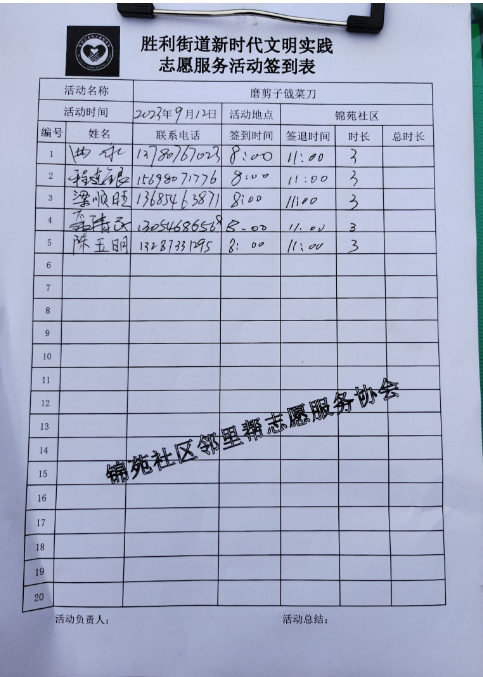 胜利街道新时代文明实践
志愿服务活动签到表
活动名称 磨剪子戗菜刀
活动时间 2023年9月12日 活动地点 锦苑社区
编号 姓名 联系电话 签到时间 签退时间 时长 总时长
1 13780767023 8:00 11:00 3
2 程连银 15698071776 8:00 11:00 3
3 梁顺昌 13685463871 8:00 11:00 3
4 13054686568 8:00 11:00 3
5 陈玉明 13287331295 8:00 11:00 3
6
7
8
9
10
11
12
13
14
15
16
17
18
19
20
锦苑社区邻里帮志愿服务协会
活动负责人： 活动总结：